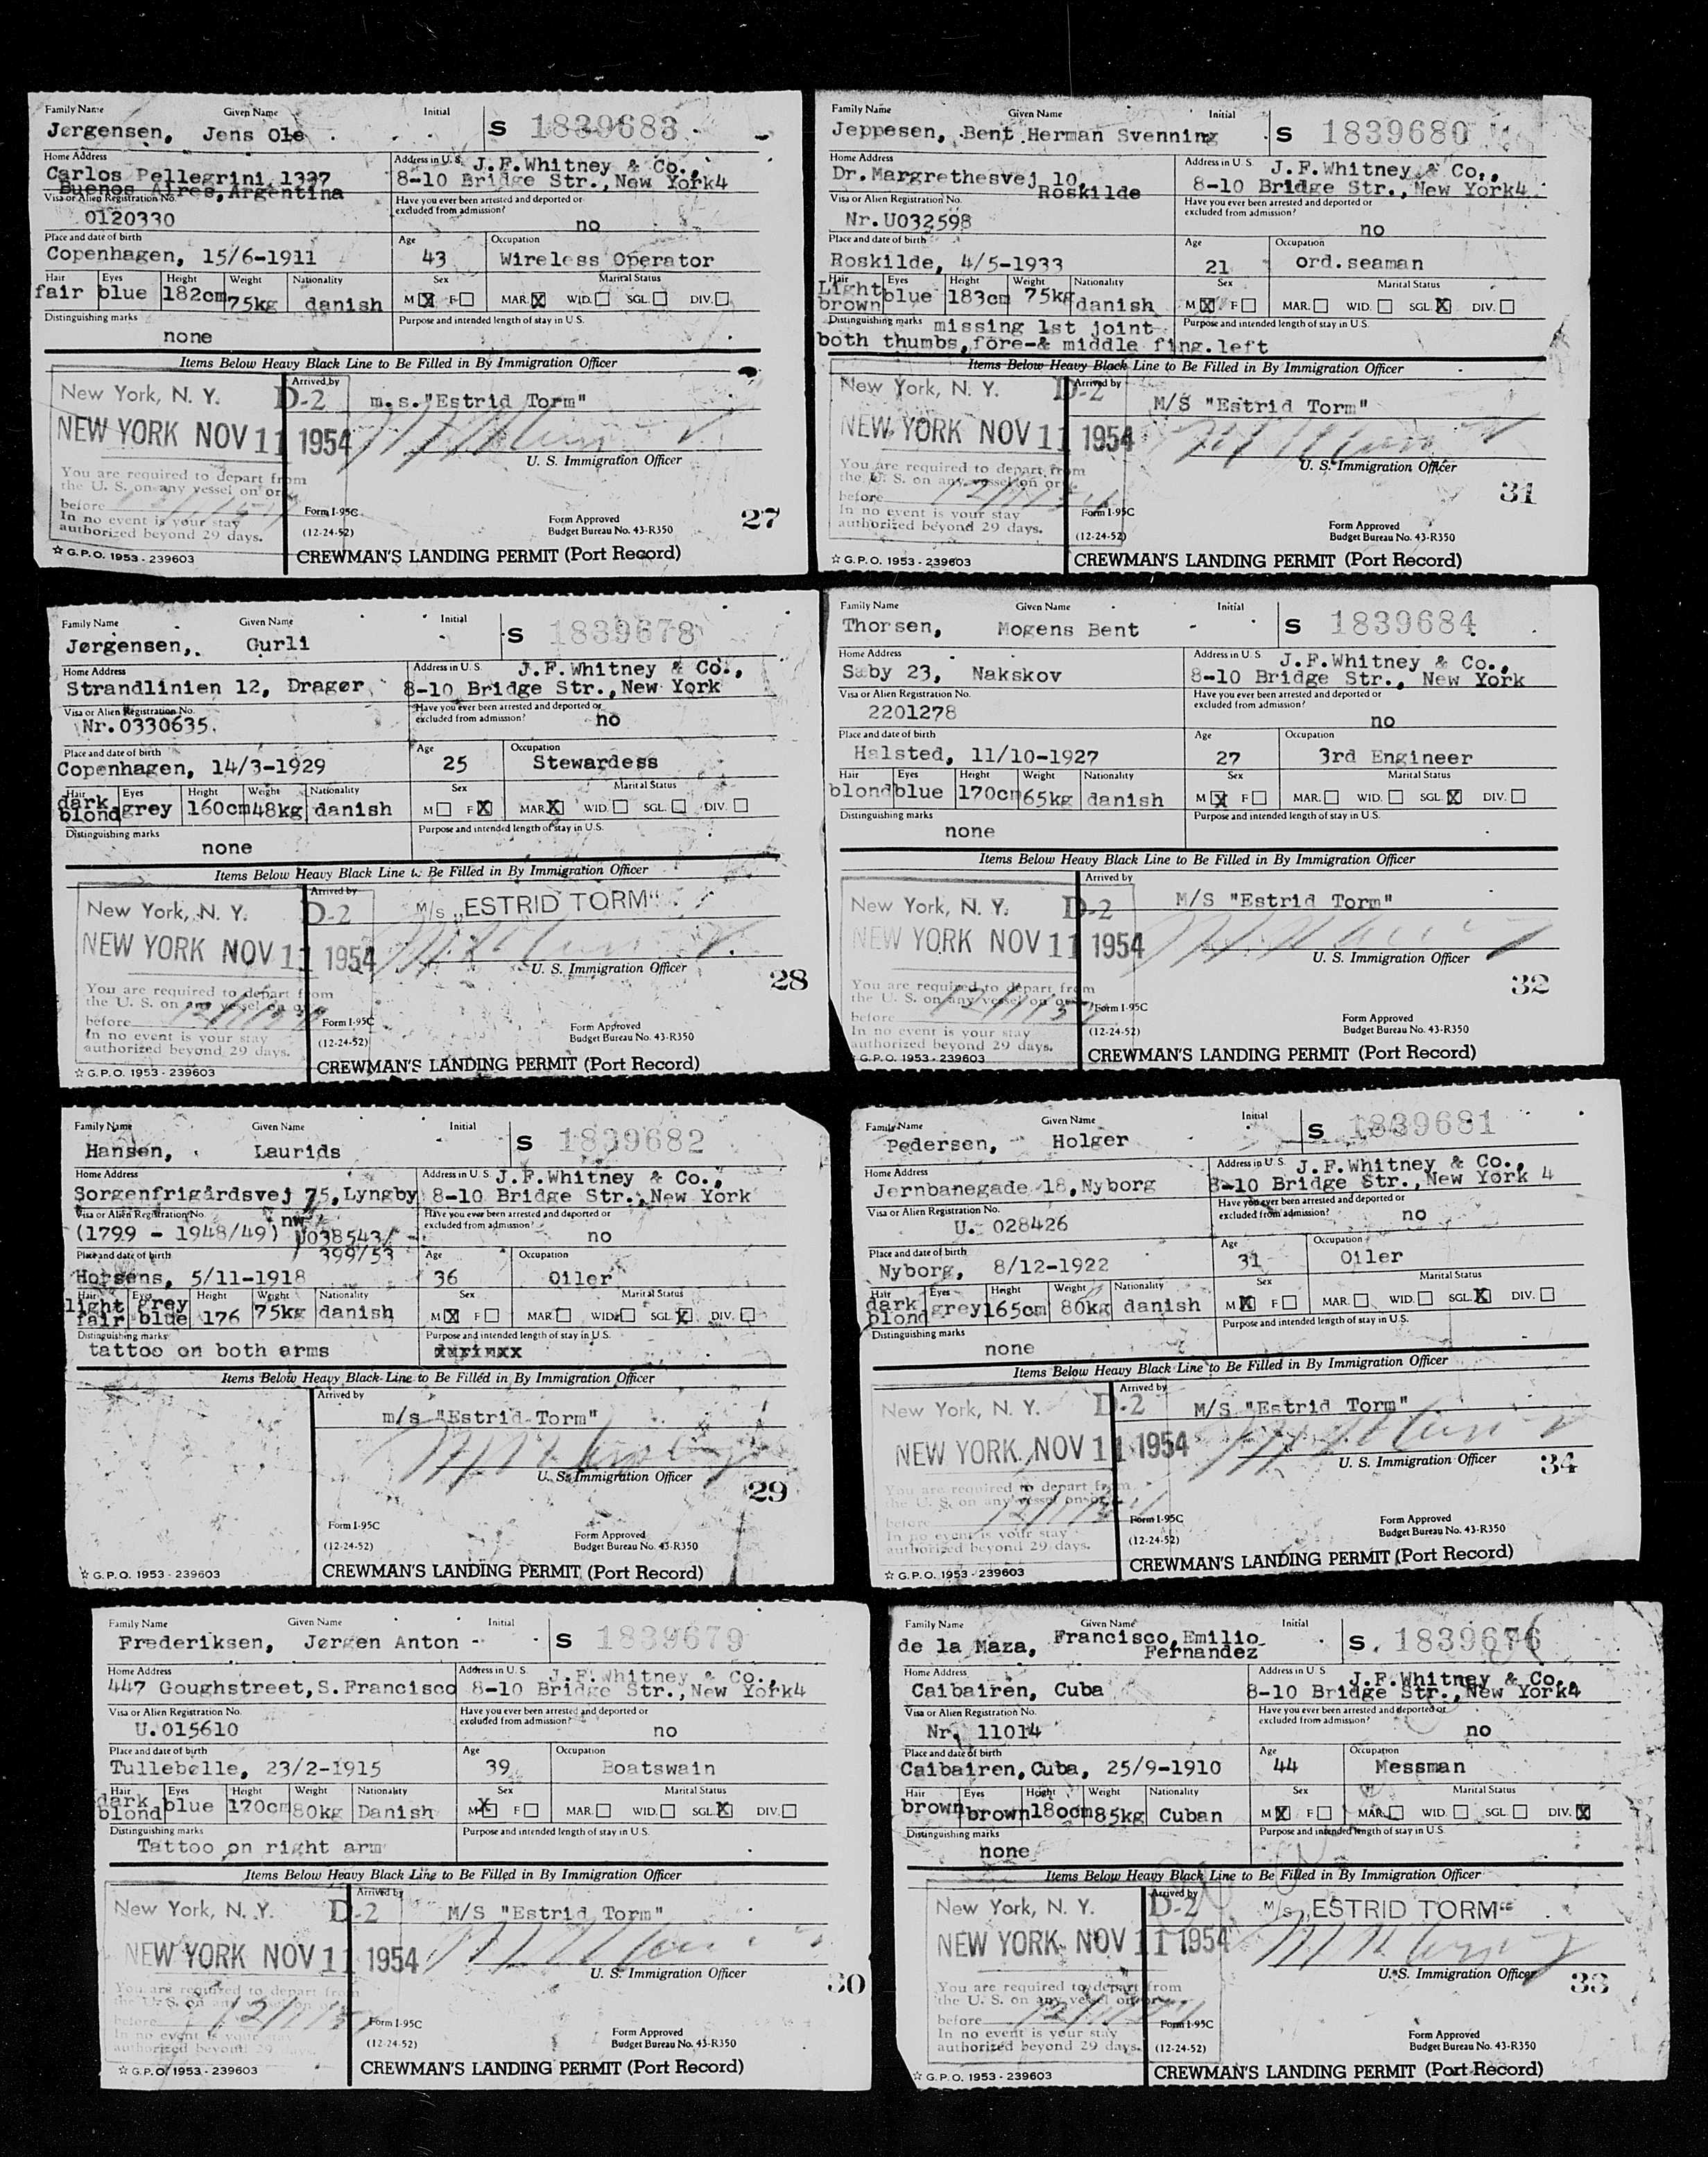 Family Name Given Name Initial
Jørgensen, Jens Ole
S 1839683
Home Address
Carlos Pellegrini 1337
Buenos Aires, Argentina
Address in U. S. J.F.Whitney & Co.,
8-10 Bridge Str., New York4
Visa or Alien Registration No.
0120330
Have you ever been arrested and deported or
excluded from admission?
no
Place and date of birth
Copenhagen, 15/6-1911
Age
43
Occupation
Wireless Operator
Hair Eyes Height Weight Nationality
fair blue 182cm 75kg danish
Sex Marital Status
M X F MAR. X WID. SGL. DIV.
Distinguishing marks
none
Purpose and intended length of stay in U.S.
Items Below Heavy Black Line to Be Filled in By Immigration Officer
New York, N. Y. D-2
NEW YORK NOV 11 1954
You are required to depart from
the U. S. on any vessel on or
before
In no event is your stay
authorized beyond 29 days.
Arrived by
m.s."Estrid Torm"
U. S. Immigration Officer
Form I-95C
(12-24-52)
Form Approved
Budget Bureau No. 43-R350
27
☆ G.P.O. 1953 - 239603
CREWMAN'S LANDING PERMIT (Port Record)
Family Name Given Name Initial
Jeppesen, Bent Herman Svenning
S 1839680
Home Address
Dr.Margrethesvej 10,
Roskilde
Address in U. S. J.F.Whitney & Co.,
8-10 Bridge Str., New York4
Visa or Alien Registration No.
Nr.U032598
Have you ever been arrested and deported or
excluded from admission?
no
Place and date of birth
Roskilde, 4/5-1933
Age
21
Occupation
ord.seaman
Hair Eyes Height Weight Nationality
Light brown blue 183cm 75kg danish
Sex Marital Status
M X F MAR. WID. SGL. X DIV.
Distinguishing marks missing 1st joint
both thumbs, fore-& middle fing.left
Purpose and intended length of stay in U.S.
Items Below Heavy Black Line to Be Filled in By Immigration Officer
New York, N. Y. D-2
NEW YORK NOV 11 1954
You are required to depart from
the U. S. on any vessel on or
before
In no event is your stay
authorized beyond 29 days.
Arrived by
M/S "Estrid Torm"
U. S. Immigration Officer
31
Form I-95C
(12-24-52)
Form Approved
Budget Bureau No. 43-R350
☆ G.P.O. 1953 - 239603
CREWMAN'S LANDING PERMIT (Port Record)
Family Name Given Name Initial
Jørgensen, Gurli
S 1839678
Home Address
Strandlinien 12, Dragør
Address in U. S. J.F.Whitney & Co.,
8-10 Bridge Str., New York
Visa or Alien Registration No.
Nr.0330635.
Have you ever been arrested and deported or
excluded from admission?
no
Place and date of birth
Copenhagen, 14/3-1929
Age
25
Occupation
Stewardess
Hair Eyes Height Weight Nationality
dark blond grey 160cm 48kg danish
Sex Marital Status
M F X MAR. X WID. SGL. DIV.
Distinguishing marks
none
Purpose and intended length of stay in U.S.
Items Below Heavy Black Line to Be Filled in By Immigration Officer
New York, N. Y. D-2
NEW YORK NOV 11 1954
You are required to depart from
the U. S. on any vessel on or
before
In no event is your stay
authorized beyond 29 days.
Arrived by
M/S „ESTRID TORM"
U. S. Immigration Officer
28
Form I-95C
(12-24-52)
Form Approved
Budget Bureau No. 43-R350
☆ G.P.O. 1953 - 239603
CREWMAN'S LANDING PERMIT (Port Record)
Family Name Given Name Initial
Thorsen, Mogens Bent
S 1839684
Home Address
Sæby 23, Nakskov
Address in U. S. J.F.Whitney & Co.,
8-10 Bridge Str., New York
Visa or Alien Registration No.
2201278
Have you ever been arrested and deported or
excluded from admission?
no
Place and date of birth
Halsted, 11/10-1927
Age
27
Occupation
3rd Engineer
Hair Eyes Height Weight Nationality
blond blue 170cm 65kg danish
Sex Marital Status
M X F MAR. WID. SGL. X DIV.
Distinguishing marks
none
Purpose and intended length of stay in U.S.
Items Below Heavy Black Line to Be Filled in By Immigration Officer
New York, N. Y. D-2
NEW YORK NOV 11 1954
You are required to depart from
the U. S. on any vessel on or
before
In no event is your stay
authorized beyond 29 days.
Arrived by
M/S "Estrid Torm"
U. S. Immigration Officer
32
Form I-95C
(12-24-52)
Form Approved
Budget Bureau No. 43-R350
G.P.O. 1953 - 239603
CREWMAN'S LANDING PERMIT (Port Record)
Family Name Given Name Initial
Hansen, Laurids
S 1839682
Home Address
Sorgenfrigårdsvej 75, Lyngby
Address in U. S. J.F.Whitney & Co.,
8-10 Bridge Str., New York
Visa or Alien Registration No.
(1799 - 1948/49) nw U038543/
399/53
Have you ever been arrested and deported or
excluded from admission?
no
Place and date of birth
Horsens, 5/11-1918
Age
36
Occupation
Oiler
Hair Eyes Height Weight Nationality
light fair grey blue 176 75kg danish
Sex Marital Status
M X F MAR. WID. SGL. X DIV.
Distinguishing marks
tattoo on both arms
Purpose and intended length of stay in U.S.
Items Below Heavy Black Line to Be Filled in By Immigration Officer
Arrived by
m/s "Estrid Torm"
U. S. Immigration Officer
29
Form I-95C
(12-24-52)
Form Approved
Budget Bureau No. 43-R350
☆ G.P.O. 1953 - 239603
CREWMAN'S LANDING PERMIT (Port Record)
Family Name Given Name Initial
Pedersen, Holger
S 1839681
Home Address
Jernbanegade 18, Nyborg
Address in U. S. J.F.Whitney & Co.,
8-10 Bridge Str., New York 4
Visa or Alien Registration No.
U. 028426
Have you ever been arrested and deported or
excluded from admission?
no
Place and date of birth
Nyborg, 8/12-1922
Age
31
Occupation
Oiler
Hair Eyes Height Weight Nationality
dark blond grey 165cm 80kg danish
Sex Marital Status
M X F MAR. WID. SGL. X DIV.
Distinguishing marks
none
Purpose and intended length of stay in U.S.
Items Below Heavy Black Line to Be Filled in By Immigration Officer
New York, N. Y. D-2
NEW YORK NOV 11 1954
You are required to depart from
the U. S. on any vessel on or
before
In no event is your stay
authorized beyond 29 days.
Arrived by
M/S "Estrid Torm"
U. S. Immigration Officer
34
Form I-95C
(12-24-52)
Form Approved
Budget Bureau No. 43-R350
☆ G.P.O. 1953 - 239603
CREWMAN'S LANDING PERMIT (Port Record)
Family Name Given Name Initial
Frederiksen, Jørgen Anton
S 1839679
Home Address
447 Goughstreet, S.Francisco
Address in U. S. J.F.Whitney & Co.,
8-10 Bridge Str., New York4
Visa or Alien Registration No.
U.015610
Have you ever been arrested and deported or
excluded from admission?
no
Place and date of birth
Tullebølle, 23/2-1915
Age
39
Occupation
Boatswain
Hair Eyes Height Weight Nationality
dark blond blue 170cm 80kg Danish
Sex Marital Status
M X F MAR. WID. SGL. X DIV.
Distinguishing marks
Tattoo on right arm
Purpose and intended length of stay in U.S.
Items Below Heavy Black Line to Be Filled in By Immigration Officer
New York, N. Y. D-2
NEW YORK NOV 11 1954
You are required to depart from
the U. S. on any vessel on or
before
In no event is your stay
authorized beyond 29 days.
Arrived by
M/S "Estrid Torm"
U. S. Immigration Officer
30
Form I-95C
(12-24-52)
Form Approved
Budget Bureau No. 43-R350
☆ G.P.O. 1953 - 239603
CREWMAN'S LANDING PERMIT (Port Record)
Family Name Given Name Initial
de la Maza, Francisco, Emilio
Fernandez
S. 1839676
Home Address
Caibairen, Cuba
Address in U. S. J.F.Whitney & Co.,
8-10 Bridge Str., New York4
Visa or Alien Registration No.
Nr. 11014
Have you ever been arrested and deported or
excluded from admission?
no
Place and date of birth
Caibairen, Cuba, 25/9-1910
Age
44
Occupation
Messman
Hair Eyes Height Weight Nationality
brown brown 180cm 85kg Cuban
Sex Marital Status
M X F MAR. WID. SGL. DIV. X
Distinguishing marks
none
Purpose and intended length of stay in U.S.
Items Below Heavy Black Line to Be Filled in By Immigration Officer
New York, N. Y. D-2
NEW YORK NOV 11 1954
You are required to depart from
the U. S. on any vessel on or
before
In no event is your stay
authorized beyond 29 days.
Arrived by
M/S „ESTRID TORM"
U. S. Immigration Officer
33
Form I-95C
(12-24-52)
Form Approved
Budget Bureau No. 43-R350
☆ G.P.O. 1953 - 239603
CREWMAN'S LANDING PERMIT (Port Record)